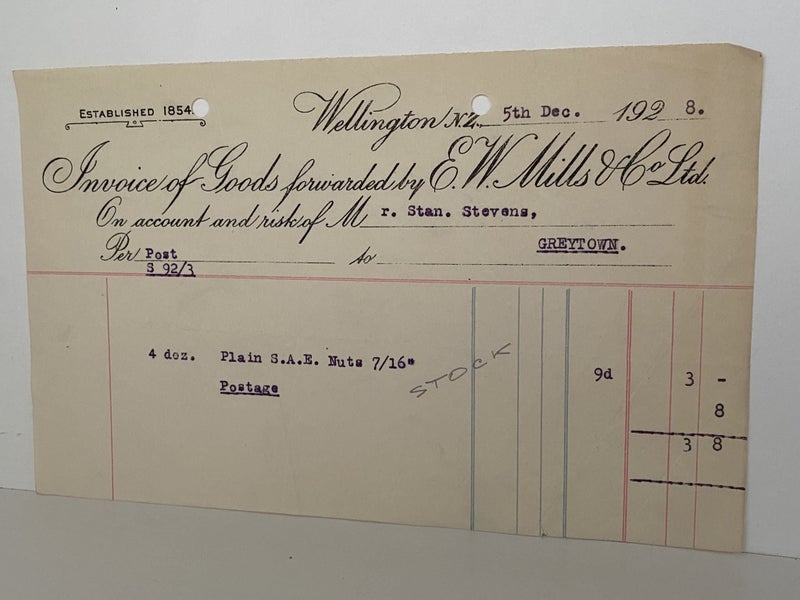 ESTABLISHED 1854.
Wellington N.Z. 5th Dec. 1928.
Invoice of Goods forwarded by E.W. Mills & Co Ltd.
On account and risk of Mr. Stan. Stevens,
Per Post to GREYTOWN.
S 92/3
4 doz. Plain S.A.E. Nuts 7/16" 9d 3 -
STOCK
Postage 8
3 8